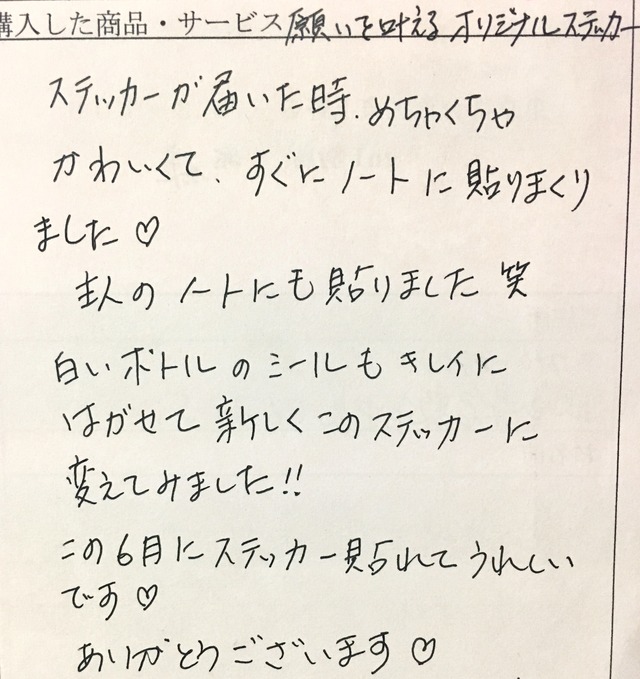 購入した商品・サービス 願いを叶える オリジナルステッカー
ステッカーが届いた時、めちゃくちゃ
かわいくて、すぐにノートに貼りまくり
ました♡
主人のノートにも貼りました 笑
白いボトルのシールもキレイに
はがせて新しくこのステッカーに
変えてみました!!
この6月にステッカー貼れてうれしい
です♡
ありがとうございます♡